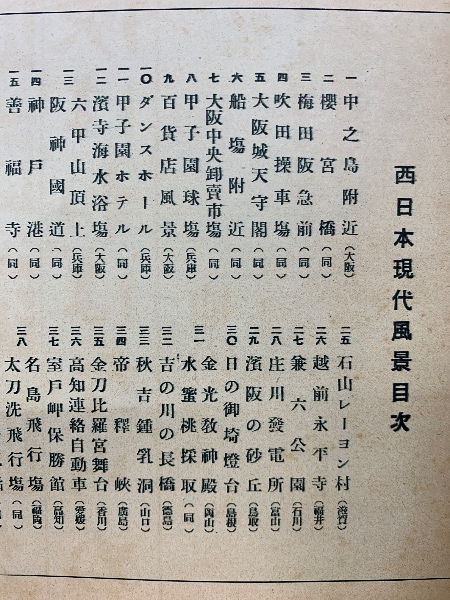 西日本現代風景目次
一 中之島附近（大阪）
二 櫻宮橋（同）
三 梅田阪急前（同）
四 吹田操車塲（同）
五 大阪城天守閣（同）
六 船塲附近（同）
七 大阪中央卸賣市塲（同）
八 甲子園球塲（兵庫）
九 百貨店風景（大阪）
一〇 ダンスホール（兵庫）
一一 甲子園ホテル（同）
一二 濱寺海水浴塲（大阪）
一三 六甲山頂上（兵庫）
阪神國道（同）
一四 神戸港（同）
一五 善福寺（同）
二五 石山レーヨン村（滋賀）
二六 越前永平寺（福井）
二七 兼六公園（石川）
二八 庄川發電所（富山）
二九 濱阪の砂丘（鳥取）
三〇 日の御埼燈台（島根）
三一 金光教神殿（岡山）
水蜜桃採取（同）
三二 吉の川の長橋（德島）
三三 秋吉鍾乳洞（山口）
三四 帝釋峽（廣島）
三五 金刀比羅宮舞台（香川）
三六 高知連絡自動車（愛媛）
三七 室戸岬保勝館（高知）
三八 名島飛行塲（福岡）
太刀洗飛行塲（同）